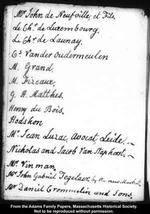 Mr John de Neufville et Fils.
Le Chr. de Luxembourg.
Le Chr. de Launay.
Cs. Vander Oudermeulen
M. Grand.
M. Fizeaux.
G. H. Matthes.
Henry du Bois.
Hodshon
Mr Jean Luzac, Avocat, Leide.
Nicholas and Jacob Van Staphorst.
Mr. Vinman
Mr John Gabriel Tegelaer, by the
Mr Daniel Crommelin and Sons
From the Adams Family Papers, Massachusetts Historical Society
Not to be reproduced without permission.